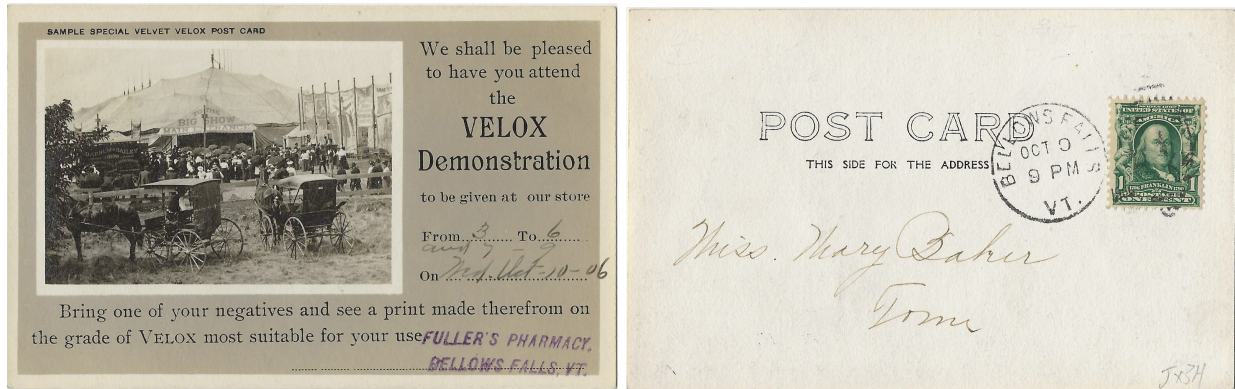 SAMPLE SPECIAL VELVET VELOX POST CARD
BIG SHOW
We shall be pleased
to have you attend
the
VELOX
Demonstration
to be given at our store
From 3 To 6
and 7 - 9
On Wed. Oct-10-06
Bring one of your negatives and see a print made therefrom on
the grade of VELOX most suitable for your use
FULLER'S PHARMACY,
BELLOWS FALLS, VT.
POST CARD
THIS SIDE FOR THE ADDRESS
BELLOWS FALLS
OCT 9
9 PM
VT.
UNITED STATES OF
AMERICA
1 1
FRANKLIN
POSTAGE
ONE CENT
Miss. Mary Baker
Town